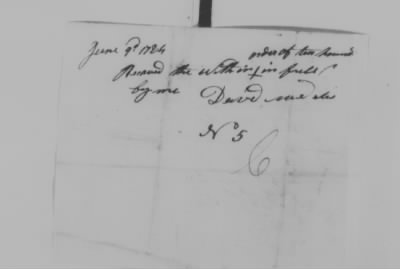 June 9th 1784 order of ten pound
Received the within in full
by me David
No 5